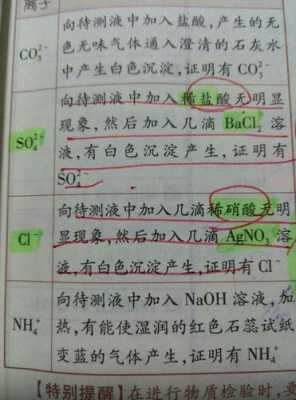 离子
CO₃²⁻
向待测液中加入盐酸,产生的无
色无味气体通入澄清的石灰水
中产生白色沉淀,证明有CO₃²⁻
SO₄²⁻
向待测液中加入稀盐酸无明显
现象,然后加入几滴 BaCl₂ 溶
液,有白色沉淀产生,证明有
SO₄²⁻
Cl⁻
向待测液中加入几滴稀硝酸无明
显现象,然后加入几滴 AgNO₃ 溶
液,有白色沉淀产生,证明有Cl⁻
NH₄⁺
向待测液中加入 NaOH 溶液,加
热,有能使湿润的红色石蕊试纸
变蓝的气体产生,证明有 NH₄⁺
【特别提醒】在进行物质检验时,要